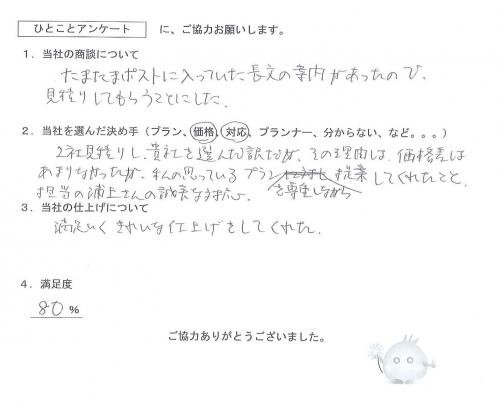 ひとことアンケート に、ご協力お願いします。
1．当社の商談について
たまたまポストに入っていた長文の案内があったので、
見積りしてもらうことにした。
2．当社を選んだ決め手（プラン、価格、対応、プランナー、分からない、など。。。）
2社見積りし、貴社を選んだ訳だが、その理由は、価格差は
あまりなかったが、私の思っているプランを尊重しながら提案してくれたこと、
担当の浦上さんの誠実な対応。
3．当社の仕上げについて
満足いくきれいな仕上げをしてくれた。
4．満足度
80 %
ご協力ありがとうございました。